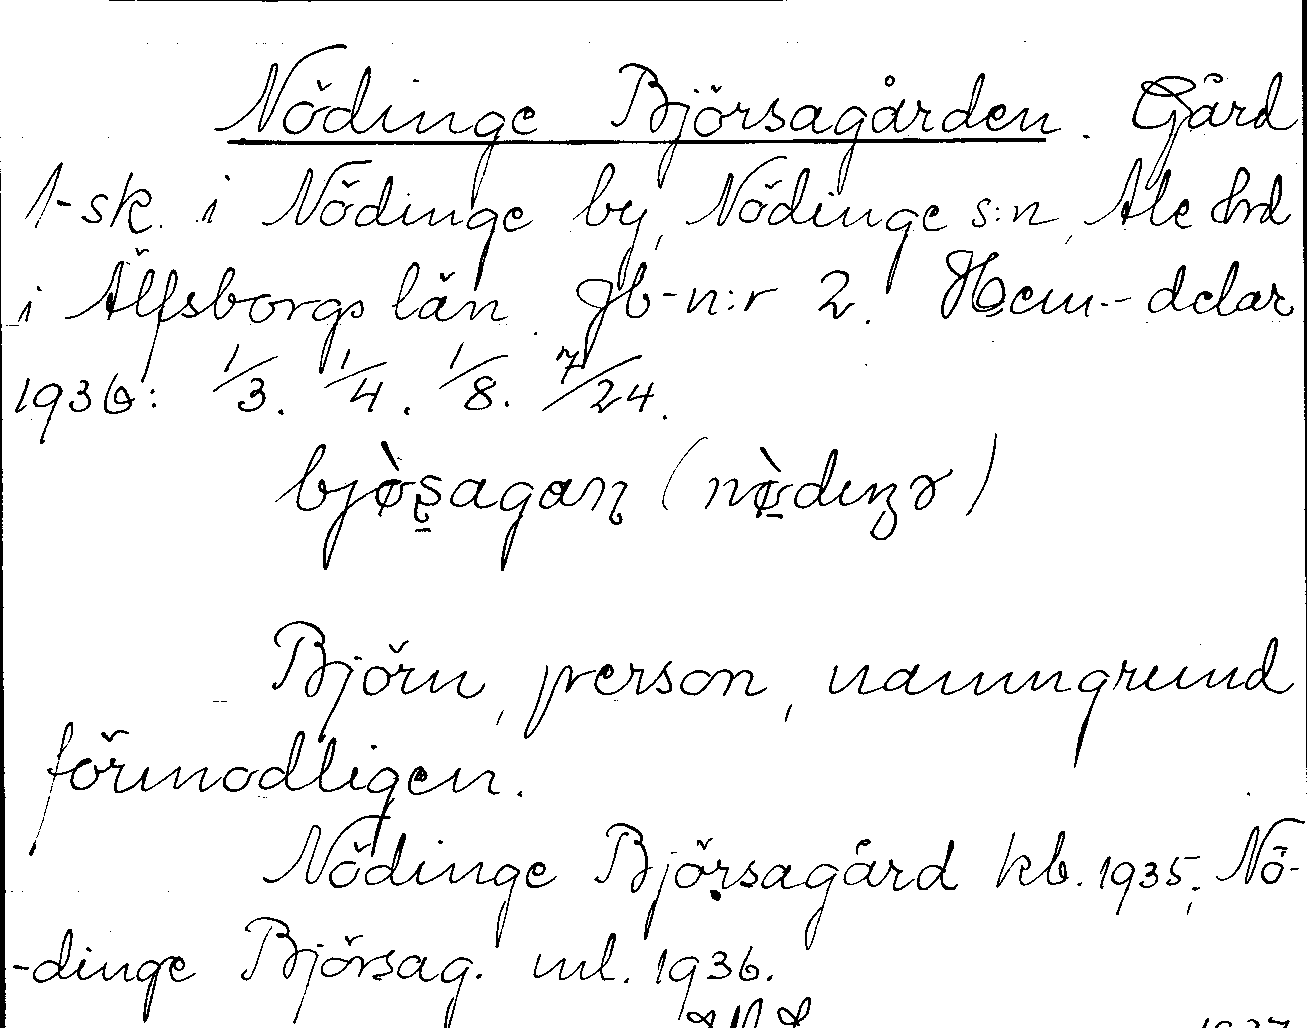 Nödinge Björsagården. Gård
1-sk. i Nödinge by, Nödinge s:n, Ale hd
i Älfsborgs län. Jb-n:r 2. Hem.-delar
1936: 1/3. 1/4. 1/8. 7/24.
bjø̀ʂagaɳ (nø̀dıŋə)
Björn, person, namngrund
förmodligen.
Nödinge Björsagård kb. 1935; Nö-
-dinge Björsag. ml. 1936.